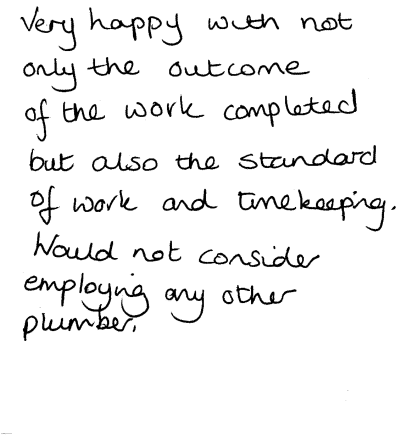 Very happy with not
only the outcome
of the work completed
but also the standard
of work and timekeeping.
Would not consider
employing any other
plumber.